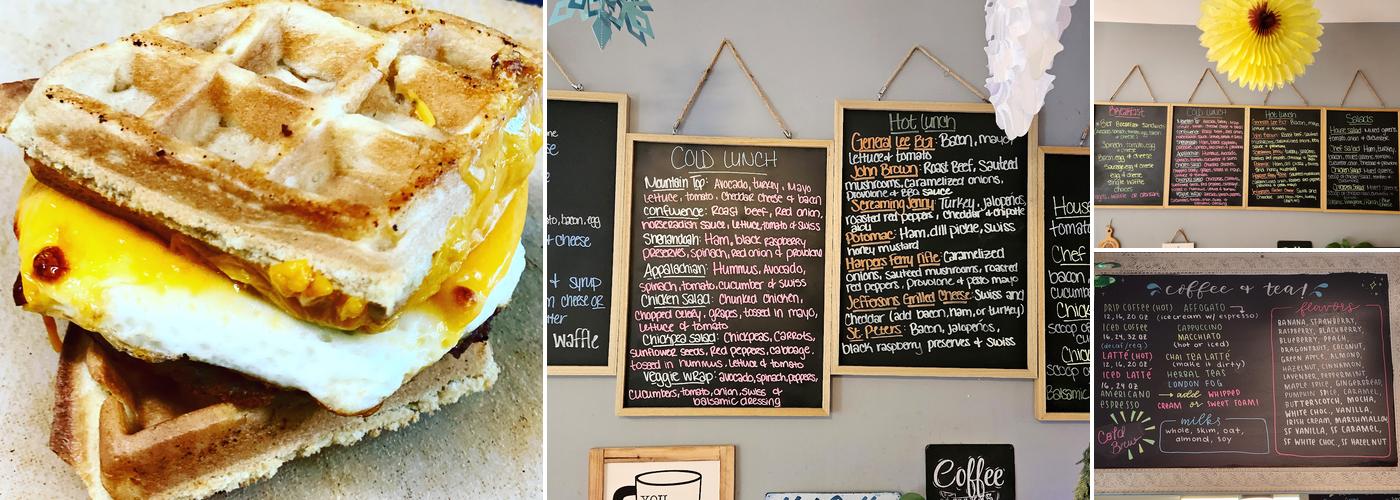 to, bacon, egg
& cheese
& syrup
m cheese or
tter
waffle
COLD LUNCH
Mountain Top: Avocado, turkey, Mayo
lettuce, tomato, cheddar cheese & bacon
Confluence: Roast beef, Red onion,
horseradish sauce, lettuce, tomato & swiss
Shenandoah: Ham, black raspberry
preserves, spinach, red onion & provolone
Appalachian: Hummus, Avocado,
spinach, tomato, cucumber & swiss
Chicken salad: Chunked chicken,
chopped celery, grapes, tossed in mayo,
lettuce & tomato
Chickpea salad: Chickpeas, Carrots,
sunflower seeds, Red peppers, cabbage,
tossed in hummus, lettuce & tomato
Veggie Wrap: avocado, spinach, peppers,
cucumbers, tomato, onion, swiss &
balsamic dressing
Hot Lunch
General Lee Big: Bacon, mayo
lettuce & tomato
John Brown: Roast Beef, Sautéed
mushrooms, caramelized onions,
provolone & BBQ sauce
Screaming Jenny: Turkey, jalapeños,
roasted red peppers, cheddar & chipotle
aiou
Potomac: Ham, dill pickle, swiss
honey mustard
Harpers Ferry Rifle: Caramelized
onions, sauteed mushrooms, roasted
red peppers, provolone & pesto mayo
Jeffersons Grilled Cheese: Swiss and
Cheddar (add bacon, ham, or turkey)
St. Peters: Bacon, jalapeños,
black raspberry preserves & swiss
House
tomato
Chef
bacon,
cucumb
Chick
scoop o
Chic
scoop o
Balsamic
YOU
Coffee
Breakfast
COLD LUNCH
Hot Lunch
Salads
House salad: Mixed greens,
Chef salad
coffee & tea!
DRIP COFFEE (HOT)
12, 16, 20 oz
ICED COFFEE
16, 24, 32 oz
(decaf/reg)
LATTE (HOT)
12, 16, 20 oz
ICED LATTE
16, 24 oz
AMERICANO
ESPRESSO
Cold
Brew
AFFOGATO
(icecream w/ espresso)
CAPPUCCINO
MACCHIATO
(hot or iced)
CHAI TEA LATTE
(make it dirty)
HERBAL TEAS
LONDON FOG
add WHIPPED
CREAM or SWEET FOAM!
milks
whole, skim, oat,
almond, soy
flavors
BANANA, STRAWBERRY,
RASPBERRY, BLACKBERRY,
BLUEBERRY, PEACH,
DRAGONFRUIT, COCONUT,
GREEN APPLE, ALMOND,
HAZELNUT, CINNAMON,
LAVENDER, PEPPERMINT,
MAPLE SPICE, GINGERBREAD,
PUMPKIN SPICE, CARAMEL,
BUTTERSCOTCH, MOCHA,
WHITE CHOC., VANILLA,
IRISH CREAM, MARSHMALLOW
SF VANILLA, SF CARAMEL,
SF WHITE CHOC., SF HAZELNUT